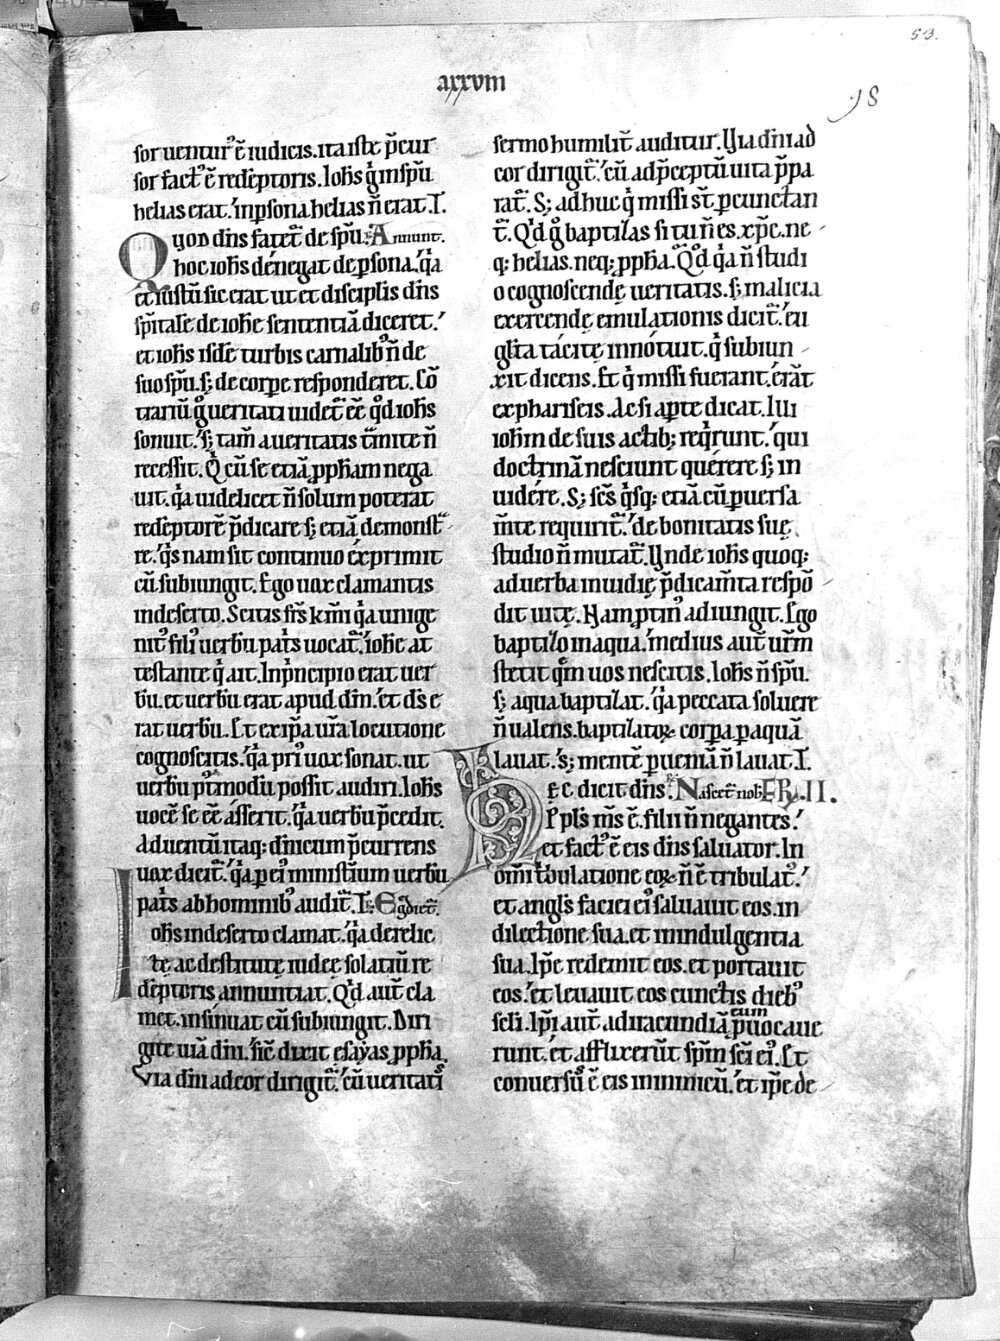 53.
axxviii
98
sor uentur᾽ ē iudicis. ita iste p̄cur
sor fact᾽ ē redēptoris. Ioh̄s g̊ in sp̄u
helias erat.᾽ in p̱sona helias n̄ erat. I.
Quod dn̄s fatet᷑ de sp̄u.᾽ Annunt.
hoc ioh̄s dénegat de p̱sona. q̇a
et iustū sic erat ut et disciplis dn̄s
sp̄itale de ioh̄e sententiā diceret.᾽
et ioh̄s isdē turbis carnalib᾽ n̄ de
suo sp̄u. s; de corpe responderet. Cō
trariū g̊ ueritati uidet᷑ eē qd̊ ioh̄s
sonuit.᾽ s; tam̄ a ueritatis t̄mite n̄
recessit. Q̇ cū se etiā p̱pham nega
uit. q̇a uidelicet n̄ solum poterat
redēptorē p̄dicare s; etiā demonst᷑
re.᾽ q̇s nam sit continuo éxprimit
cū subiungit. Ego uox clamantis
in deserto. Scitis fr̄s k̄mi q̇a unige
nit᾽ filı᾽ uerbū pat̄s uocat᷑.᾽ ioh̄e at
testante q̇ ait. In p̱ncipio erat uer
bū. et uerbū erat apud dm̄. et d̄s e
rat uerbū. Et ex ip̄a ur̄a locutione
cognoscitis. q̇a pri᾽ uox sonat. ut
uerbū p᾽tmodū possit audiri. Ioh̄s
uocē se eē ásserit.᾽ q̇a uerbū p̄cedit.
Aduentū itaq; dn̄icum p̄currens
uox dicit᷑.᾽ q̇a p̱ ei᾽ ministi̇um uerbū
pat̄s ab hominib᾽ audit᷑. I. Egdiet᷑.
Ioh̄s in deserto clamat.᾽ q̇a derelic
tę. ac destitutę iudeę solatiū re
dēptoris annuntiat. Qd̊ aut̄ cla
met. insinuat cū subiungit. Diri
gite uiā dn̄i.᾽ sic̄ dixit esaẏas p̱pha.
Via dn̄i ad cor dirigit᷑.᾽ cū ueritatı᾽
sermo humilit̄ auditur. Via dn̄i ad
cor dirigit᷑.᾽ cū ad p̄ceptū uita p̱pa
rat᷑. S; adhuc q̇ missi st̄ p̱cunctan
t᷑. Qd̊ g̊ baptizas si tu n̄ es. xp̄c. ne
q; helias. neq; p̱pha. Qd̊ q̇a n̄ studi
o cognoscendę ueritatis. s; malicia
exercendę emulationis dicit᷑.᾽ eu
glı̄ta tácitę innótuit. q̇ subiun
xit dicens. Et q̇ missi fuerant.᾽ érāt
ex phariseis. Ac si apte dicat. Illi
ioh̄m de suis actib; req̇runt.᾽ qui
doctrinā nesciunt quérere s; in
uidére. S; sc̄s q̇sq; etiā cū puersa
m̄te requirit᷑.᾽ de bonitatis suę
studio n̄ mutat᷑. Vnde ioh̄s quoq;
ad uerba inuidię p̄dicam̄ta respō
dit uitę. Nam p̱tin᾽ adiungit. Ego
baptizo in aqua.᾽ medius aut̄ ur̄m
stetit qm̊ uos nescitis. Ioh̄s n̄ sp̄u.
s; aqua baptizat.᾽ q̇a peccata soluere
n̄ ualens. baptizatoꝝ corpa p̱ aquā
lauat.᾽ s; mentē p̱ ueniā n̄ lauat. I.
Hęc dicit dn̄s.᾽ Nascet᷑ nob̄ FR. II.
Ppl̄s m̄s ē. filii n̄ negantes.᾽
et fact᾽ ē eis dn̄s saluator. In
om̄i t̊bulatione eoꝝ n̄ ē tribulat᾽.᾽
et angl̄s faciei ei᾽ saluauit eos. in
dilectione sua. et in indulgentia
sua. Ip̄e redemit eos. et portauit
eos.᾽ et leuauit eos cunctis dieb᾽
sc̄li. Ip̄i aut̄ ad iracundiā p̱uocaue
eum
runt.᾽ ét afflixerūt sp̄m sc̄i ei᾽. Et
conuersu᾽ ē eis in inimicū.᾽ et ip̄e de